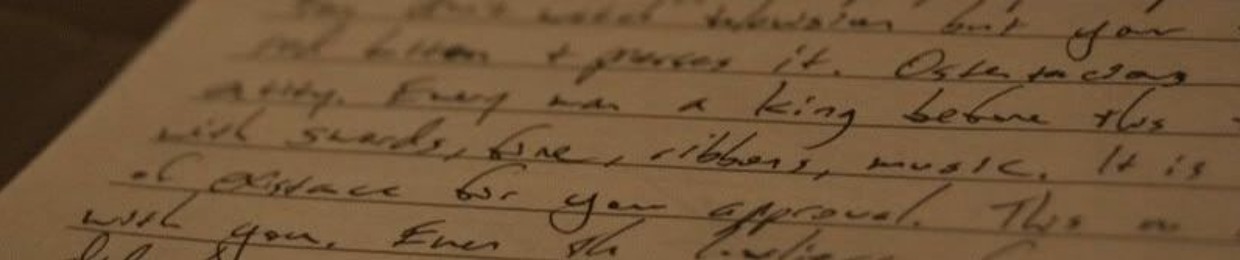 television but you
red button & presses it. Ostentatious
Every man a king before this
with swords, fire, ribbons, music. It is
of existence for your approval. This
with you. Even the